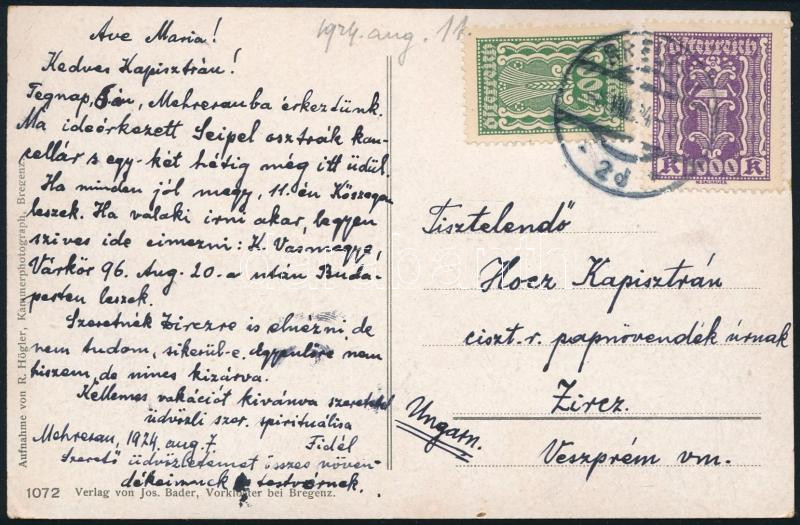 1924. aug. 11.
Ave Maria!
Kedves Kapisztrán!
Tegnap, 6-án, Mehrerauba érkeztünk.
Ma ideérkezett Seipel osztrák kan-
cellár s egy-két hétig még itt üdül.
Ha minden jól megy, 11.-én Kőszegen
leszek. Ha valaki irni akar, legyen
szives ide cimezni: K. Vasmegye,
Várkör 96. Aug. 20.-a után Buda-
pesten leszek.
Szeretnék Zirczre is elnézni, de
nem tudom, sikerül-e. Egyenlőre nem
hiszem, de nincs kizárva.
Kellemes vakációt kivánva szeretettel
üdvözli szer. spirituálisa
Mehrerau, 1924. aug. 7 Fidél
Szerető üdvözletemet összes növen-
dékeimnek s testvérnek.
1072 Verlag von Jos. Bader, Vorkloster bei Bregenz.
Aufnahme von R. Högler, Kammerphotograph, Bregenz.
Österreich
400
Österreich
K 1000 K
2d
Tisztelendő
Hocz Kapisztrán
ciszt. r. papnövendék úrnak
Zircz.
Ungarn.
Veszprém vm.